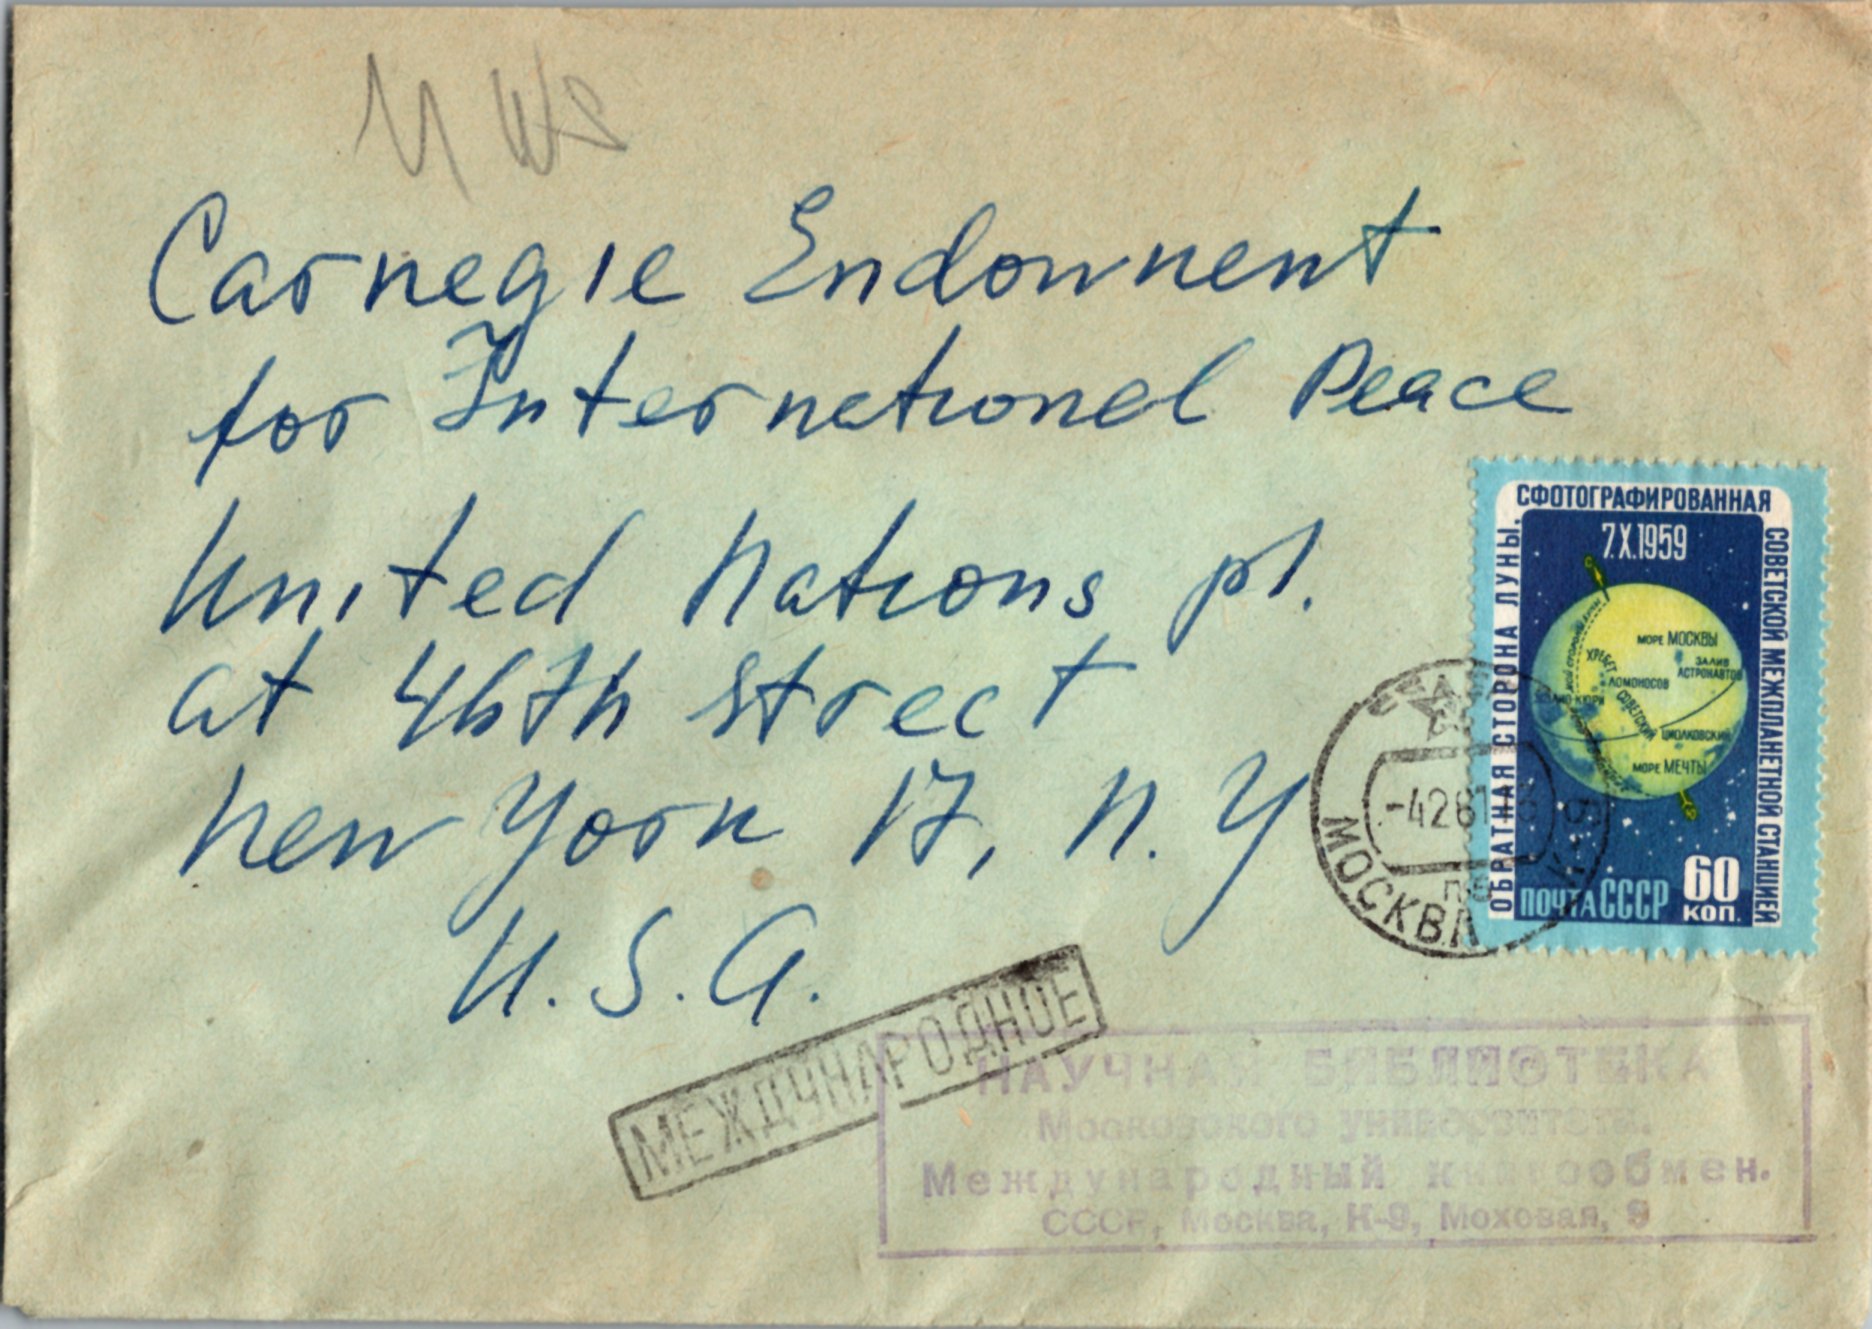 Carnegie Endowment
for International Peace
United Nations pl.
at 46th Street
New York 17, N. Y
U. S. A.
ОБРАТНАЯ СТОРОНА ЛУНЫ,
СФОТОГРАФИРОВАННАЯ
СОВЕТСКОЙ МЕЖПЛАНЕТНОЙ СТАНЦИЕЙ
7.X.1959
МОРЕ МОСКВЫ
ЗАЛИВ
АСТРОНАВТОВ
ХРЕБЕТ
СОВЕТСКИЙ
ЛОМОНОСОВ
ЦИОЛКОВСКИЙ
МОРЕ МЕЧТЫ
60
КОП.
ПОЧТА СССР
-4261
МОСКВА
МЕЖДУНАРОДНОЕ
НАУЧНАЯ БИБЛИОТЕКА
Московского университета.
Международный книгообмен.
СССР, Москва, К-9, Моховая, 9